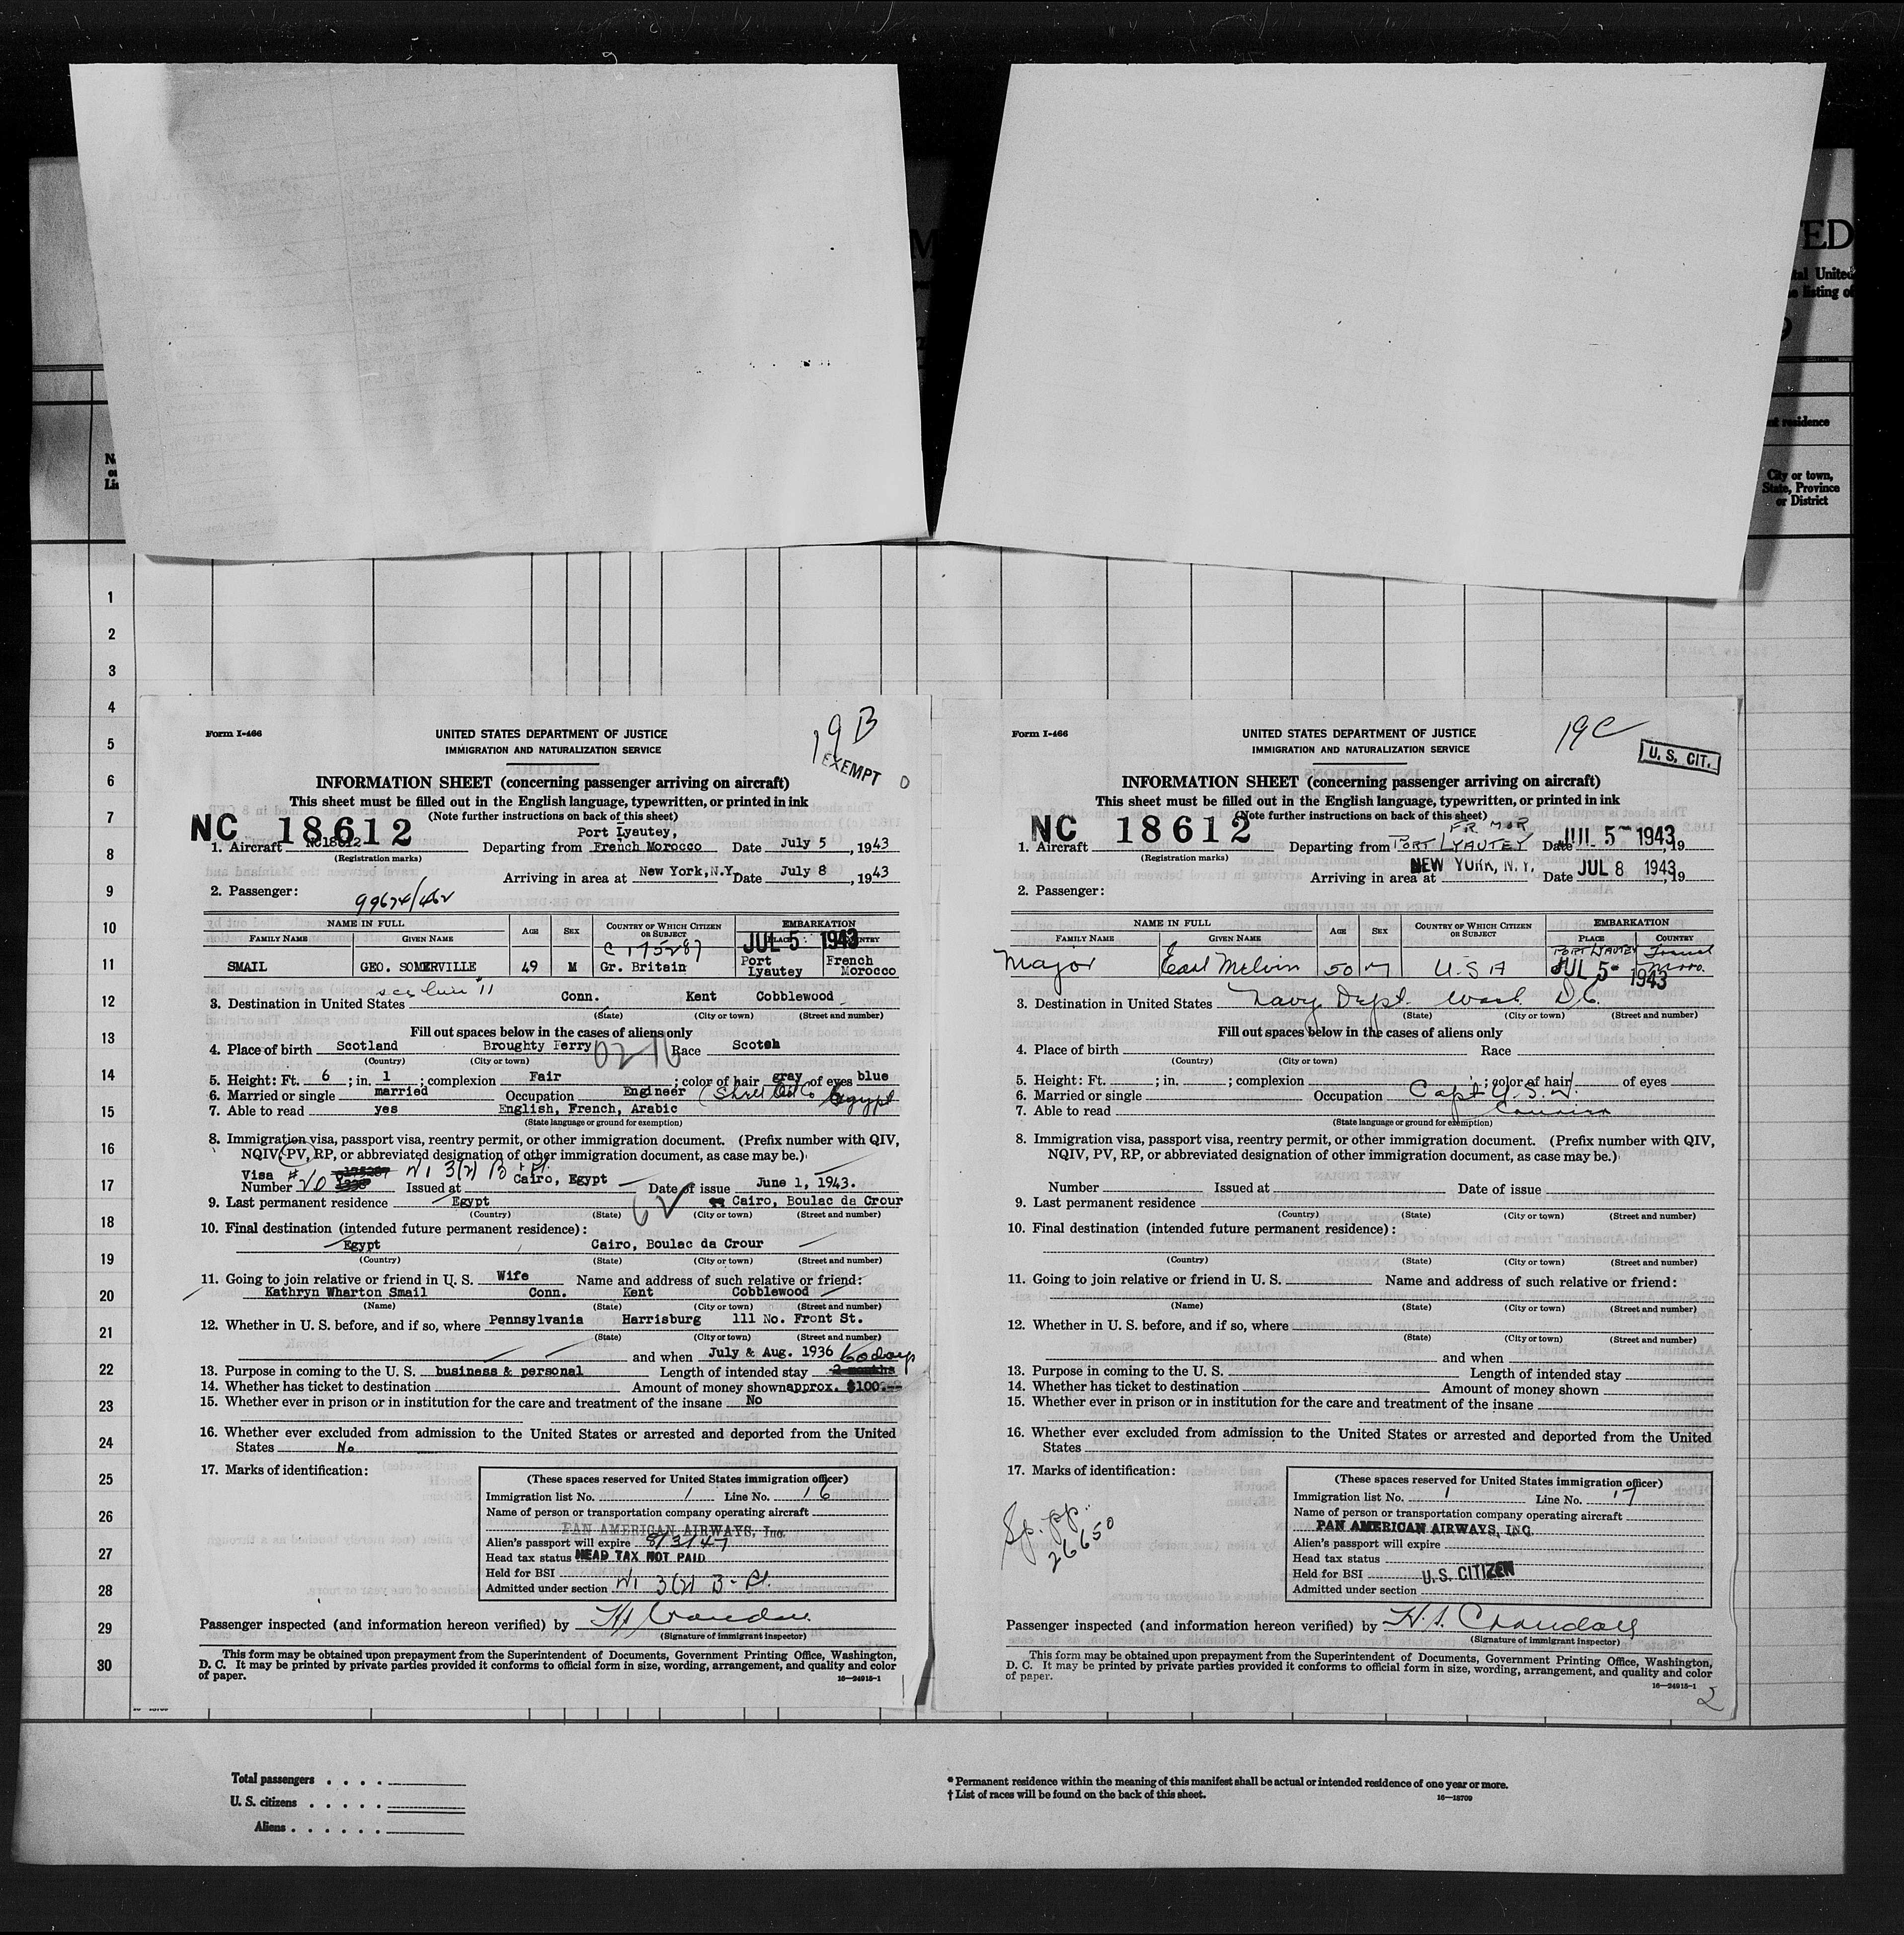 M
ED
tal United
e listing of
9
nt residence
City or town,
State, Province
or District
1
2
3
4
5
6
7
8
9
10
11
12
13
14
15
16
17
18
19
20
21
22
23
24
25
26
27
28
29
30
Form I-466
UNITED STATES DEPARTMENT OF JUSTICE
IMMIGRATION AND NATURALIZATION SERVICE
19 B
EXEMPT
INFORMATION SHEET (concerning passenger arriving on aircraft)
This sheet must be filled out in the English language, typewritten, or printed in ink
(Note further instructions on back of this sheet)
NC 18612
Port Lyautey,
1. Aircraft NC18612 Departing from French Morocco Date July 5, 1943
(Registration marks)
Arriving in area at New York, N.Y. Date July 8, 1943
2. Passenger:
NAME IN FULL
FAMILY NAME GIVEN NAME AGE SEX COUNTRY OF WHICH CITIZEN OR SUBJECT EMBARKATION PLACE COUNTRY
C 175287 JUL 5 1943
SMAIL GEO. SOMERVILLE 49 M Gr. Britain Port Lyautey French Morocco
3. Destination in United States Conn. Kent Cobblewood
(State) (City or town) (Street and number)
Fill out spaces below in the cases of aliens only
4. Place of birth Scotland Broughty Ferry Race Scotch
(Country) (City or town)
5. Height: Ft. 6; in. 1; complexion Fair; color of hair gray of eyes blue
6. Married or single married Occupation Engineer
7. Able to read yes English, French, Arabic
(State language or ground for exemption)
8. Immigration visa, passport visa, reentry permit, or other immigration document. (Prefix number with QIV,
NQIV, PV, RP, or abbreviated designation of other immigration document, as case may be.)
Visa
Number Issued at Cairo, Egypt Date of issue June 1, 1943.
9. Last permanent residence Egypt Cairo, Boulac da Crour
(Country) (State) (City or town) (Street and number)
10. Final destination (intended future permanent residence):
Egypt Cairo, Boulac da Crour
(Country) (State) (City or town) (Street and number)
11. Going to join relative or friend in U. S. Wife Name and address of such relative or friend:
Kathryn Wharton Smail Conn. Kent Cobblewood
(Name) (State) (City or town) (Street and number)
12. Whether in U. S. before, and if so, where Pennsylvania Harrisburg 111 No. Front St.
(State) (City or town) (Street and number)
and when July & Aug. 1936 60 days
13. Purpose in coming to the U. S. business & personal Length of intended stay 2 months
14. Whether has ticket to destination Amount of money shown approx. $100.--
15. Whether ever in prison or in institution for the care and treatment of the insane No
16. Whether ever excluded from admission to the United States or arrested and deported from the United
States No
17. Marks of identification:
(These spaces reserved for United States immigration officer)
Immigration list No. 1 Line No. 16
Name of person or transportation company operating aircraft
PAN AMERICAN AIRWAYS, Inc.
Alien's passport will expire 8/31/47
Head tax status HEAD TAX NOT PAID
Held for BSI
Admitted under section
Passenger inspected (and information hereon verified) by
(Signature of immigrant inspector)
This form may be obtained upon prepayment from the Superintendent of Documents, Government Printing Office, Washington,
D. C. It may be printed by private parties provided it conforms to official form in size, wording, arrangement, and quality and color
of paper.
16—24915-1
Form I-466
UNITED STATES DEPARTMENT OF JUSTICE
IMMIGRATION AND NATURALIZATION SERVICE
19C
U. S. CIT.
INFORMATION SHEET (concerning passenger arriving on aircraft)
This sheet must be filled out in the English language, typewritten, or printed in ink
(Note further instructions on back of this sheet)
NC 18612
FR MOR
1. Aircraft Departing from PORT LYAUTEY Date JUL 5 1943, 19
(Registration marks)
Arriving in area at NEW YORK, N.Y. Date JUL 8 1943, 19
2. Passenger:
NAME IN FULL
FAMILY NAME GIVEN NAME AGE SEX COUNTRY OF WHICH CITIZEN OR SUBJECT EMBARKATION PLACE COUNTRY
Major Earl Melvin 50 M U S A PORT LYAUTEY French Moro.
JUL 5 1943
3. Destination in United States Navy Dept. Wash. D.C.
(State) (City or town) (Street and number)
Fill out spaces below in the cases of aliens only
4. Place of birth Race
(Country) (City or town)
5. Height: Ft. ; in. ; complexion ; color of hair of eyes
6. Married or single Occupation Capt U.S.N.
7. Able to read
(State language or ground for exemption)
8. Immigration visa, passport visa, reentry permit, or other immigration document. (Prefix number with QIV,
NQIV, PV, RP, or abbreviated designation of other immigration document, as case may be.)
Number Issued at Date of issue
9. Last permanent residence
(Country) (State) (City or town) (Street and number)
10. Final destination (intended future permanent residence):
(Country) (State) (City or town) (Street and number)
11. Going to join relative or friend in U. S. Name and address of such relative or friend:
(Name) (State) (City or town) (Street and number)
12. Whether in U. S. before, and if so, where
(State) (City or town) (Street and number)
and when
13. Purpose in coming to the U. S. Length of intended stay
14. Whether has ticket to destination Amount of money shown
15. Whether ever in prison or in institution for the care and treatment of the insane
16. Whether ever excluded from admission to the United States or arrested and deported from the United
States
17. Marks of identification:
Sp. pp.
26650
(These spaces reserved for United States immigration officer)
Immigration list No. 1 Line No. 17
Name of person or transportation company operating aircraft
PAN AMERICAN AIRWAYS, INC.
Alien's passport will expire
Head tax status
Held for BSI U.S. CITIZEN
Admitted under section
Passenger inspected (and information hereon verified) by H. S. Crandall
(Signature of immigrant inspector)
This form may be obtained upon prepayment from the Superintendent of Documents, Government Printing Office, Washington,
D. C. It may be printed by private parties provided it conforms to official form in size, wording, arrangement, and quality and color
of paper.
16—24915-1
2
Total passengers . . . .
U. S. citizens . . . . .
Aliens . . . . . .
* Permanent residence within the meaning of this manifest shall be actual or intended residence of one year or more.
† List of races will be found on the back of this sheet.
16—18709